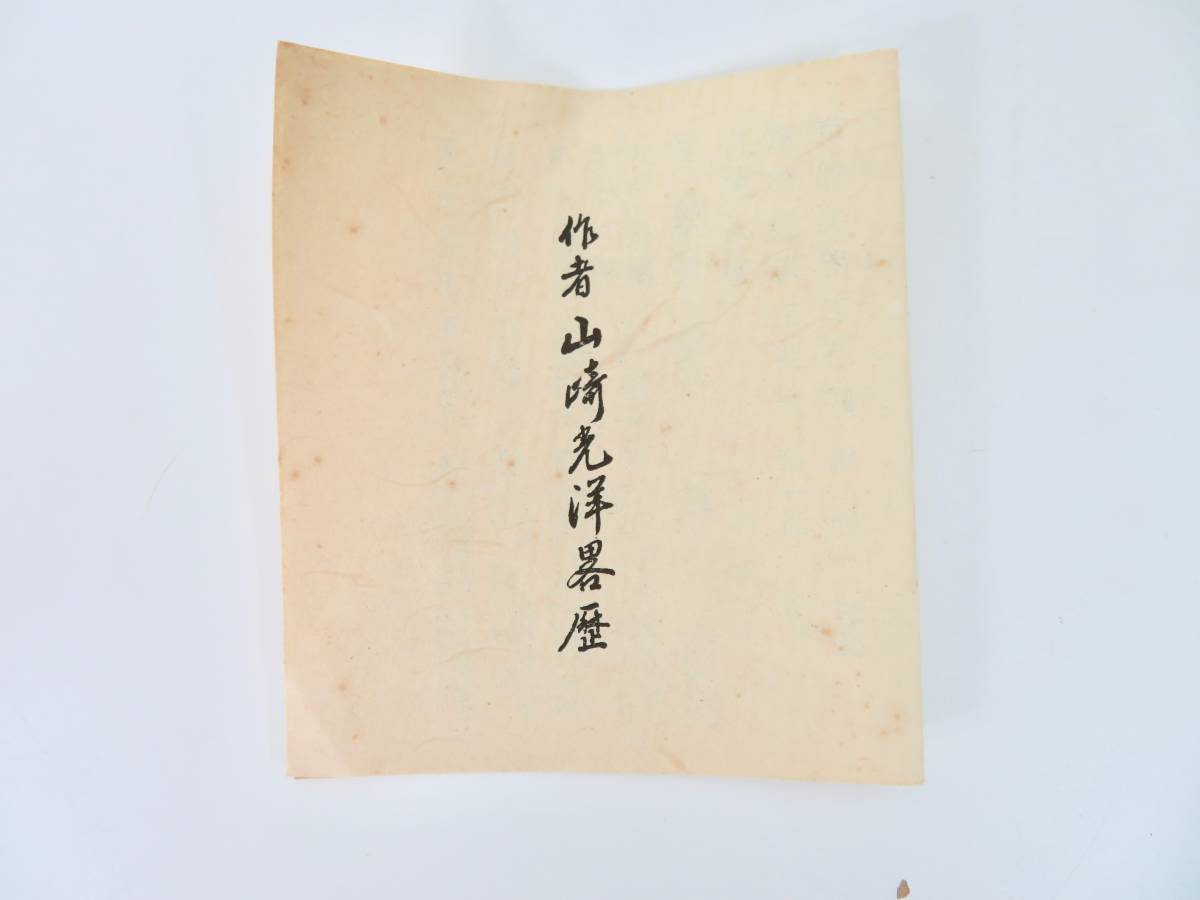 作者 山崎光洋畧歴